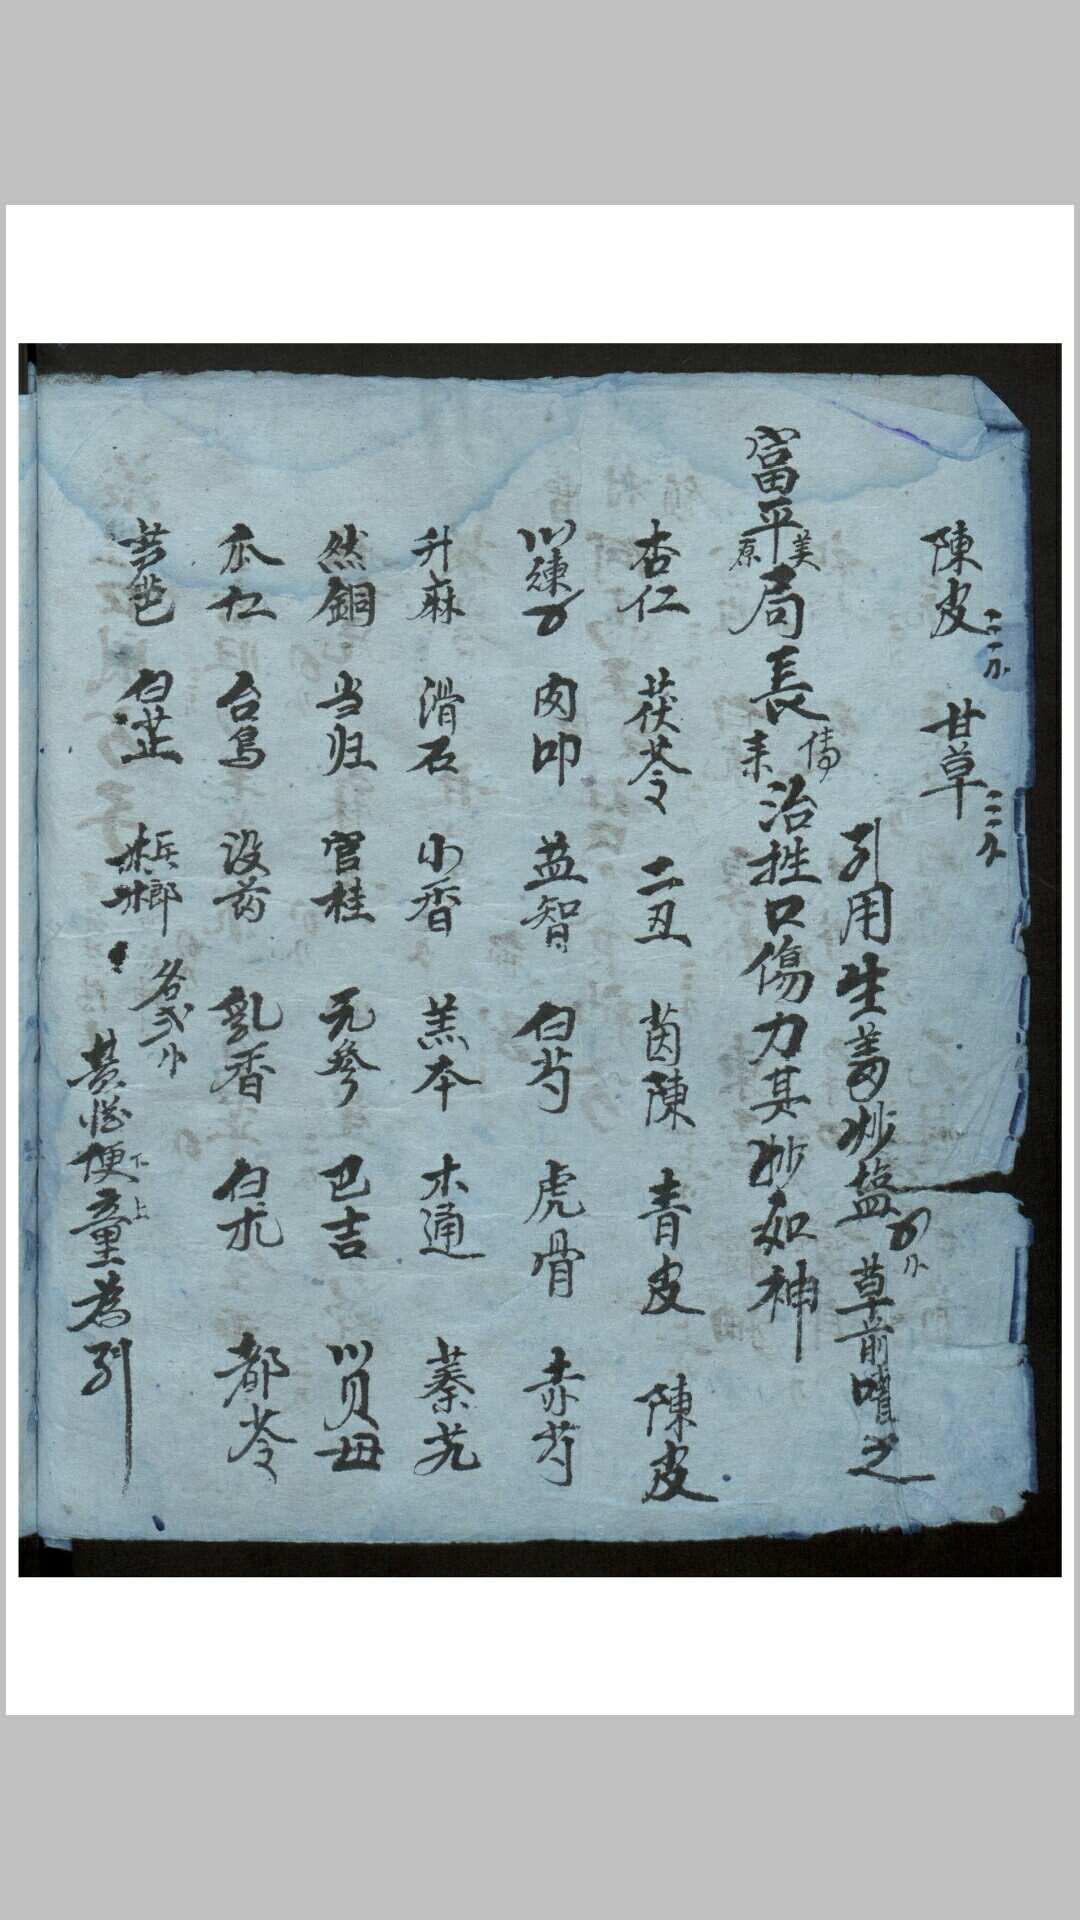 陳皮二刄 甘草二刄
引用生姜炒塩 草前嘈之
富平美原局長傳来治牲口傷力甚妙如神
杏仁 茯苓 二丑 茵陳 青皮 陳皮
川練 肉叩 益智 白芍 虎骨 赤芍
升麻 滑石 小香 羔本 木通 蓁艽
然銅 当归 官桂 元參 巴吉 川贝母
瓜仁 台烏 没药 乳香 白朮 都苓
芦芭 白芷 梹榔 各弍
黄 便童為引
下上